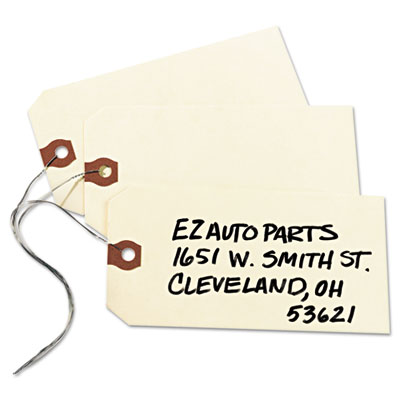 EZ AUTO PARTS
1651 W. SMITH ST.
CLEVELAND, OH
53621